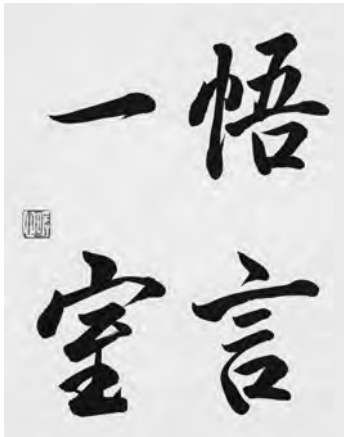 悟言
一室